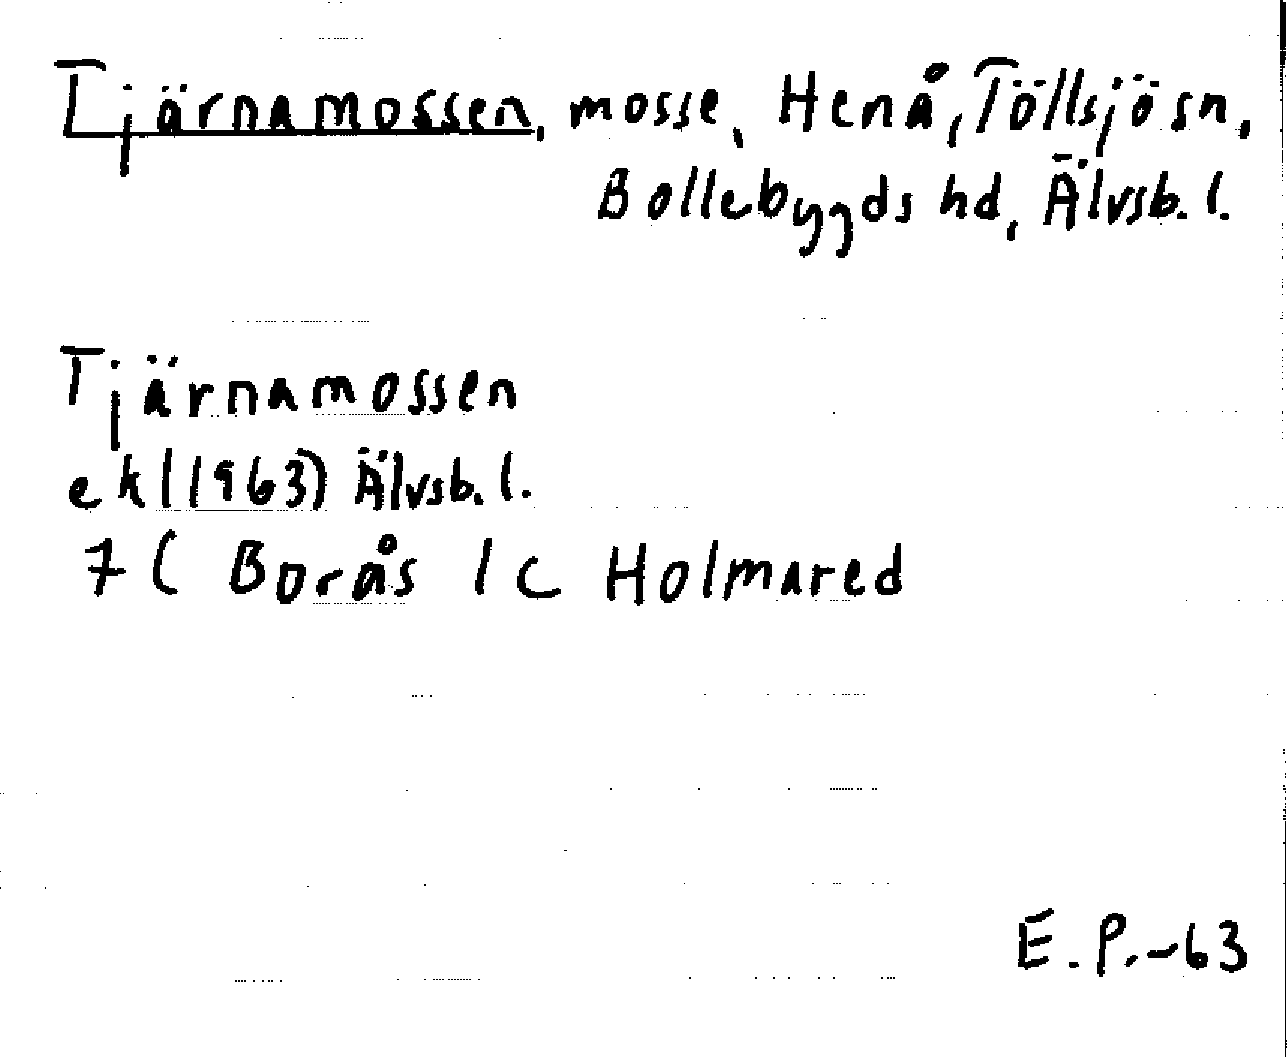 Tjärnamossen, mosse, Henå, Töllsjö sn,
Bollebygds hd, Älvsb. l.
Tjärnamossen
ek (1963) Älvsb. l.
7C Borås 1c Holmared
E.P.-63